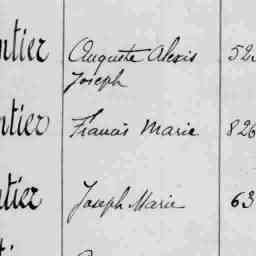 ntier Auguste Alexis 525
Joseph
ntier Francis Marie 826
ntier Joseph Marie 63